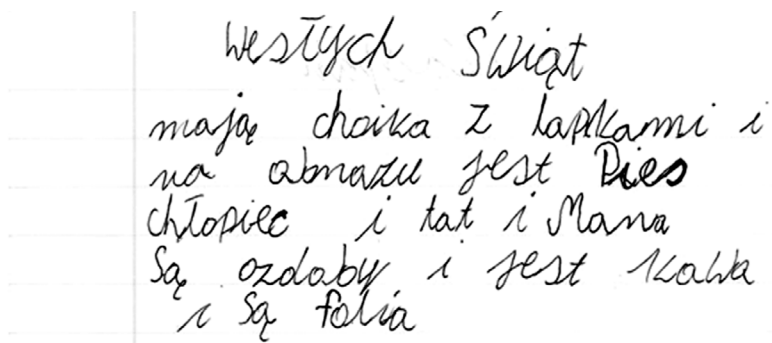 Wesłych Świąt
mają choika z lapkami i
na obrazu jest Pies
chłopiec i tat i Mana
Są ozdoby i jest kawa
i są folia